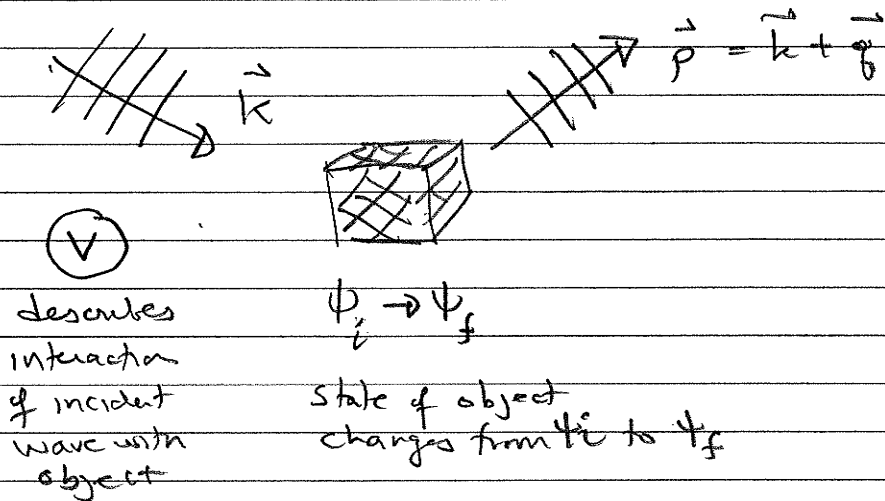 k⃗
p⃗ = k⃗ + q⃗
V
describes
interaction
of incident
wave with
object
ψᵢ → ψ_f
state of object
changes from ψi to ψ_f